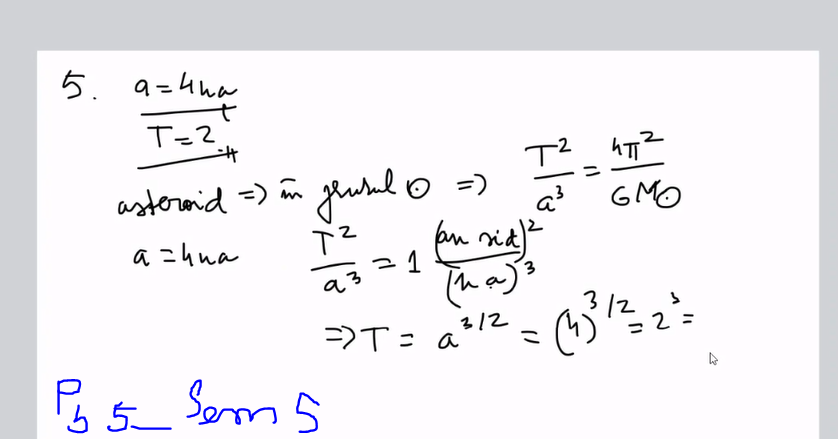 5. a = 4ua
T = ?
asteroid => în jurul ☉ => T²/a³ = 4π²/GM☉
a = 4ua T²/a³ = 1 (an sid)²/(ua)³
=> T = a^3/2 = (4)^3/2 = 2³ =
Pb 5_ Sem 5